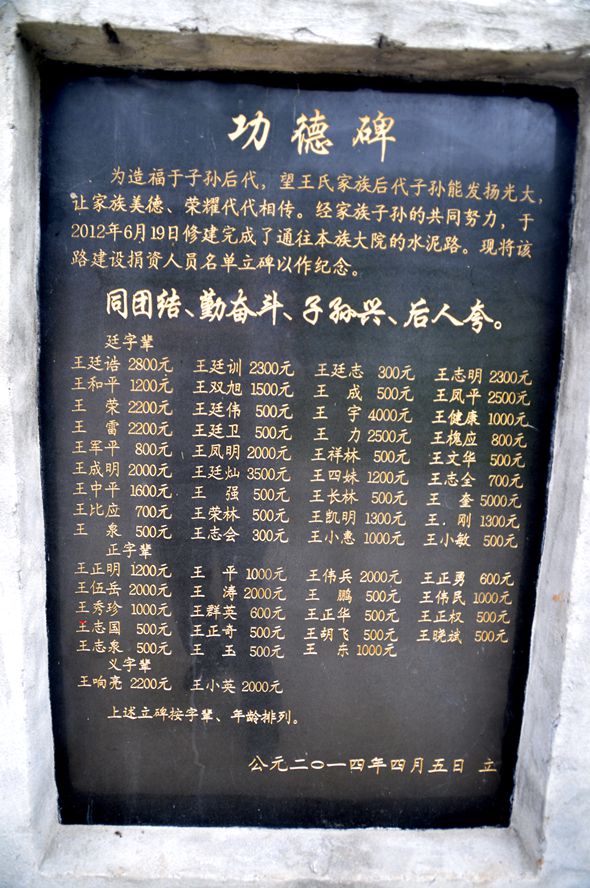 功德碑
为造福于子孙后代，望王氏家族后代子孙能发扬光大，
让家族美德、荣耀代代相传。经家族子孙的共同努力，于
2012年6月19日修建完成了通往本族大院的水泥路。现将该
路建设捐资人员名单立碑以作纪念。
同团结、勤奋斗、子孙兴、后人夸。
廷字辈
王廷诰 2800元 王廷训 2300元 王廷志 300元 王志明 2300元
王和平 1200元 王双旭 1500元 王成 500元 王凤平 2500元
王荣 2200元 王廷伟 500元 王宇 4000元 王健康 1000元
王雷 2200元 王廷卫 500元 王力 2500元 王槐应 800元
王军平 800元 王凤明 2000元 王祥林 500元 王文华 500元
王成明 2000元 王廷灿 3500元 王四妹 1200元 王志全 700元
王中平 1600元 王强 500元 王长林 500元 王奎 5000元
王比应 700元 王荣林 500元 王凯明 1300元 王刚 1300元
王泉 500元 王志会 300元 王小惠 1000元 王小敏 500元
正字辈
王正明 1200元 王平 1000元 王伟兵 2000元 王正勇 600元
王伍岳 2000元 王涛 2000元 王鹏 500元 王伟民 1000元
王秀珍 1000元 王群英 600元 王正华 500元 王正权 500元
王志国 500元 王正奇 500元 王胡飞 500元 王晓斌 500元
王志泉 500元 王玉 500元 王东 1000元
义字辈
王响亮 2200元 王小英 2000元
上述立碑按字辈、年龄排列。
公元二〇一四年四月五日 立